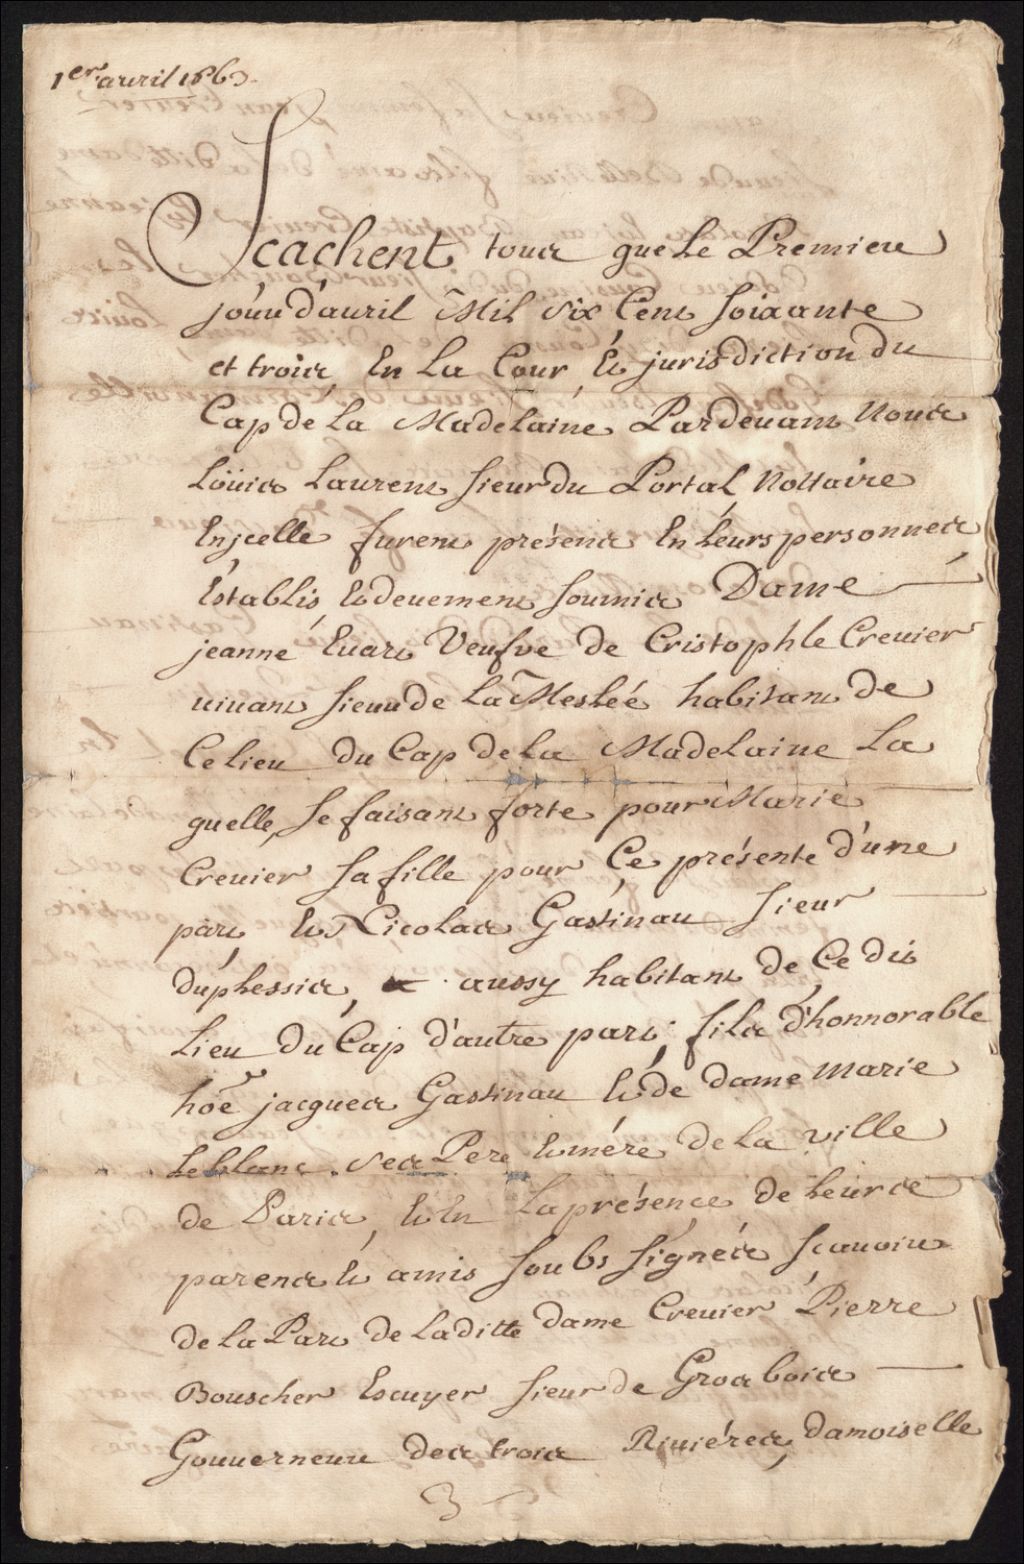 1er avril 1663.
Scachent tous que Le Premier
jour d'auril Mil Six Cent Soixante
et trois, En La Cour et jurisdiction du
Cap de La Madelaine Pardeuant Nous
Loüis Laurent Sieur du Portal Nottaire
En jcelle furent présents En Leurs personnes
Establis et deuement soumis Dame
jeanne Euart Veufve de Cristophle Creuier
uiuant Sieur de La Meslée habitant de
Ce lieu du Cap de La Madelaine La
quelle, se faisant forte pour Marie
Creuier sa fille pour Ce présente d'une
part et Nicolas Gastinau Sieur
duplessis, aussy habitant de Ce dit
Lieu du Cap d'autre part; fils d'honnorable
hoe jacques Gastinau et de Dame Marie
Leblanc ses Pere et mére de La ville
de Paris, et En La présence de Leurs
parents et amis soubs signés scauoir
de La Part de Laditte dame Creuier Pierre
Bouscher Escuyer Sieur de Gros bois
Gouuerneur des trois Riuiéres, damoiselle
3